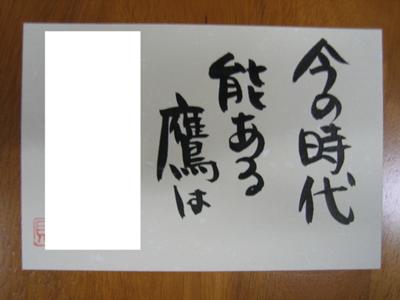 今の時代
能ある
鷹は